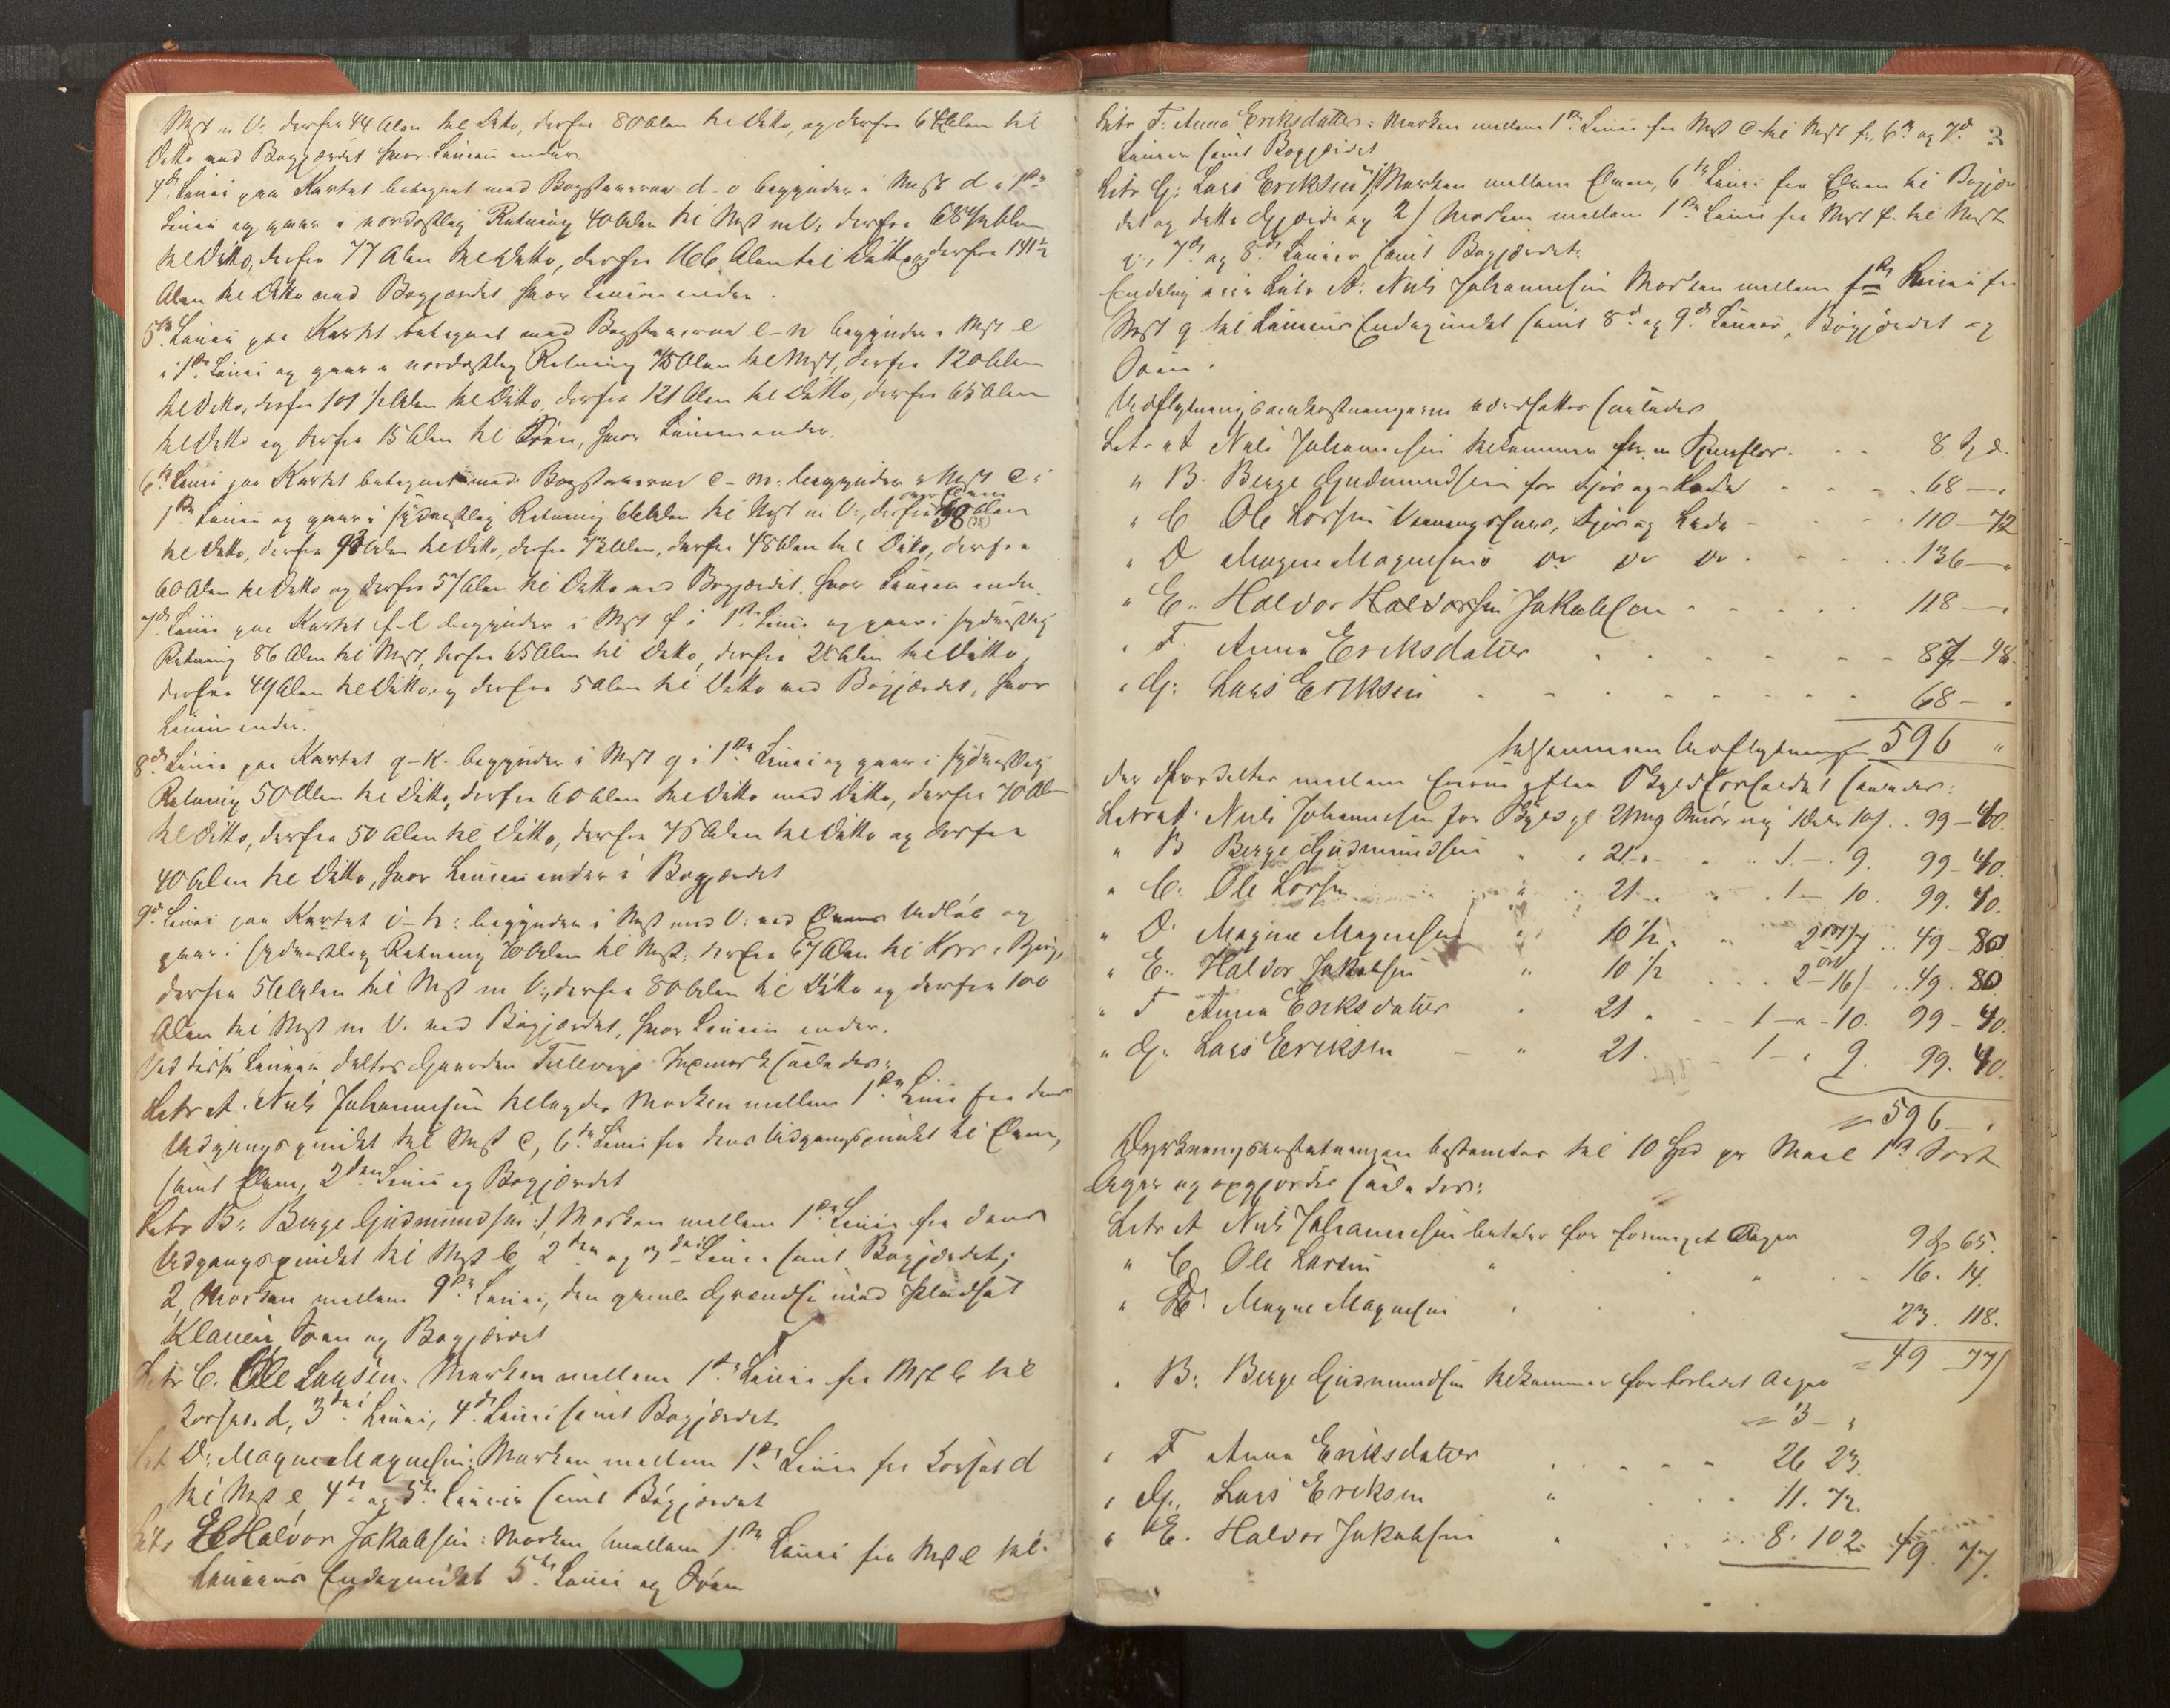 Mrst m V: derfra 44 Alen til Ditto, derfra 80 Alen til Ditto, og derfra 64 Alen til
Ditto ved Bøgjærdet hvor Linien ender.
4de Linie paa Kartet betegnet med Bogstaverne d-o begynder i Mrst d i 1ste
Linie og gaar i nordostlig Retning 40 Alen til Mrst m V: derfra 68 1/2 Alen
til Ditto, derfra 77 Alen til Ditto, derfra 166 Alen til Ditto og derfra 191 1/2
Alen til Ditto ved Bøgjærdet hvor Linien ender.
5te Linie paa Kartet betegnet med Bogstaverne e-n begynder i Mrst e
i 1ste Linie og gaar i nordostlig Retning Alen til Mrst, derfra 120 Alen
til Ditto, derfra 101 1/2 Alen til Ditto, derfra 121 Alen til Ditto, derfra 65 Alen
til Ditto og derfra 15 Alen til Søen, hvor Linien ender.
6te Linie paa Kartet betegnet med Bogstaverne c-m: begynder i Mrst c i
1ste Linie og gaar i sydvestlig Retning Alen til Mrst m V:, derfra over Elven 38 (38) Alen
til Ditto, derfra Alen til Ditto, derfra 73 Alen, derfra 48 Alen til Ditto, derfra
60 Alen til Ditto og derfra 57 Alen til Ditto ved Bøgjærdet. hvor Linien ender.
7de Linie paa Kartet f-l begynder i Mrst f i 1ste Linie og gaar i sydvestlig
Retning 86 Alen til Mrst, derfra 65 Alen til Ditto, derfra 28 Alen til Ditto,
derfra 49 Alen til Ditto og derfra 5 Alen til Ditto ved Bøgjærdet, hvor
Linien ender.
8de Linie paa Kartet g-k. begynder i Mrst g i 1ste Linie og gaar i sydvestlig
Retning 50 Alen til Ditto, derfra 60 Alen til Ditto med Ditto, derfra 70 Alen
til Ditto, derfra 50 Alen til Ditto, derfra 75 Alen til Ditto og derfra
40 Alen til Ditto, hvor Linien ender i Bøgjærdet
9de Linie paa Kartet i-h: begynder i Mrst med V: ved Elvens Udløb og
gaar i sydvestlig Retning Alen til Mrst, derfra 67 Alen til Kors i Bjerg,
derfra 56 Alen til Mrst m V:, derfra 80 Alen til Ditto og derfra 100
Alen til Mrst m V. ved Bøgjærdet, hvor Linien ender.
Ved disse Linier deltes Gaarden Tellevigs Indmark saaledes:
Litr A. Nils Johannesen tillagdes Marken mellem 1ste Linie fra dens
Udgangspunkt til Mrst c, 6te Linie fra dens Udgangspunkt til Elven,
samt Elven, 2den Linie og Bøgjærdet
Litr B: Berge Gudmundsen: 1 Marken mellem 1ste Linie fra dens
Udgangspunkt til Mrst b, 2den og 3die Linie samt Bøgjærdet;
2, Marken mellem 9de Linie, den gamle Grændse mod Pladset
Klauen, Søen og Bøgjærdet
Litr C. Ole Larsen: Marken mellem 1ste Linie fra Mrst b til
Korset d, 3die Linie, 4de Linie samt Bøgjærdet
Litr D: Magne Magnesen: Marken mellem 1ste Linie fra Korset d
til Mrst e, 4de og 5te Linier samt Bøgjærdet
Litr E Halvor Jakobsen: Marken mellem 1ste Linie fra Mrst e til
Liniens Endepunkt 5te Linie og Søen
3
Litr F. Anna Eriksdatter: Marken mellem 1ste Linie fra Mrst c til Mrst f, 6te og 7de
Linier samt Bøgjærdet
Litr G: Lars Eriksen 1/ Marken mellem Elven, 6te Linie fra Elven til Bøgjær
det og dette Gjærde og 2/ Marken mellem 1ste Linie fra Mrst f. til Mrst
g:, 7de og 8de Linier samt Bøgjærdet.
Endelig Litr A: Nils Johannesen Marken mellem 1ste Linie fra
Mrst g til Liniens Endepunkt samt 8de og 9de Linier, Bøgjærdet og
Søen.
Udflytningsomkostningerne ansattes saaledes
Litr A Nils Johannesen tilkommer for m 8 Spd.
" B. Berge Gudmundsen for Fjøs og Lade 68 - "
" C Ole Larsen Vaaningshuus, Fjøs og Lade 110 - 72
" D Magne Magnesens do do do 136 - "
" E. Halvor Halvorsen Jakobsen 118 - "
" F. Anna Eriksdatter 87 - 48.
" G: Lars Eriksen 68 - "
tilsammen Udflytningen 596 "
der fordeltes mellem Eierne efter Skyldforholdet saaledes:
Litr A. Nils Johannesen for Bygs gl 21 mg Smør ny 1 Daler 10 s. 99 - 40.
" B Berge Gudmundsen " " 21 " 1 - . 9. 99 - 40.
" C. Ole Larsen " " 21 " 1 - 10. 99. 40.
" D. Magne Magnesen " 10 1/2 " 2 17 49 - 80
" E. Halvor Jakobsen " 10 1/2 2 - 16 49. 80
" F Anna Eriksdatter " 21 " 1 - " - 10. 99 - 40.
" G. Lars Eriksen - " 21 1 - " 9. 99. 40.
= 596 - "
Dyrkningserstatningen bestemtes til 10 Spd pr Maal 1ste Sort
Ager og opgjordes saaledes:
Litr A Nils Johannesen betaler for forøget Ager 9 Sp 65.
" C. Ole Larsen " " 16. 14.
" D. Magne Magnesen " 23. 118.
= 49 - 77
" B: Berge Gudmundsen tilkommer for forladt Ager
= 3 - "
" F Anna Eriksdatter 26 23.
" G., Lars Eriksen " 11. 72.
" E. Halvor Jakobsen " 8. 102. 49. 77.